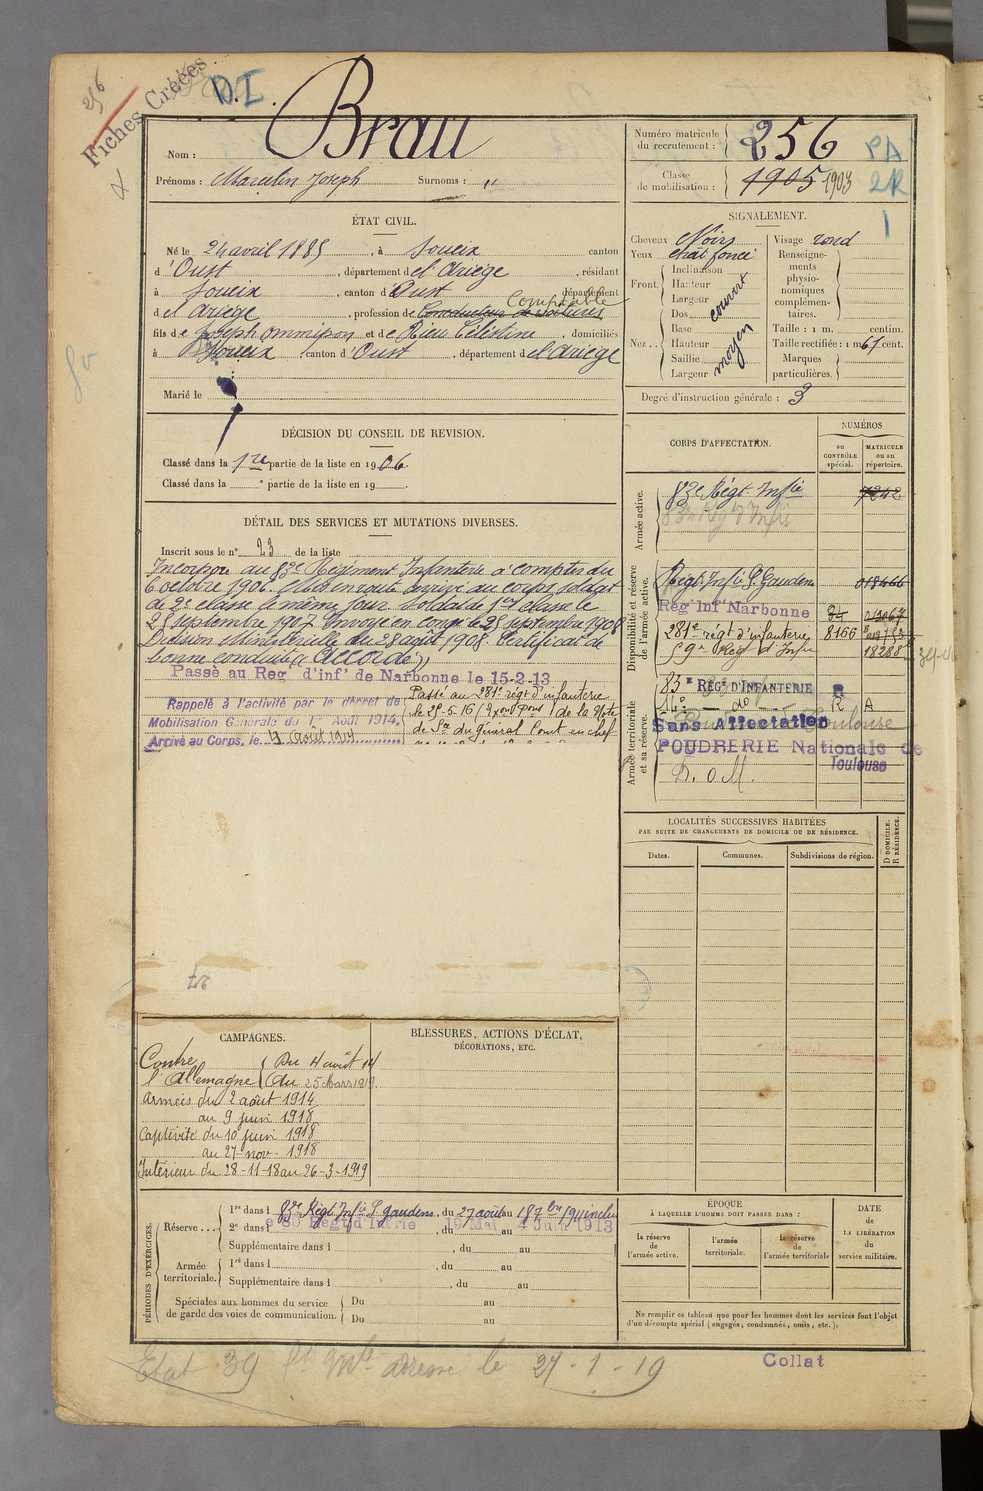 256
Fiches Créées
D.I.
Nom : Brau
Prénoms : Marcelin Joseph Surnoms : "
Numéro matricule du recrutement : 256
Classe de mobilisation : 1905 1903
PA
2R
1
ÉTAT CIVIL.
Né le 24 avril 1885, à Soueix canton
d'Oust, département de l'Ariège, résidant
à Soueix, canton d'Oust département
de l'Ariège, profession de Conducteur de voitures Comptable
fils de Joseph Ommipon et de Rieu Célestine, domiciliés
à Soueix canton d'Oust, département de l'Ariège
Marié le
SIGNALEMENT.
Cheveux Noirs
Yeux chât foncé
Front. Inclinaison
Hauteur
Largeur
couvert
Nez .. Dos
Base
Hauteur
Saillie
Largeur
moyen
Visage rond
Renseigne-
ments
physio-
nomiques
complémen-
taires.
Taille : 1 m. centim.
Taille rectifiée : 1 m 67 cent.
Marques
particulières.
Degré d'instruction générale : 3
DÉCISION DU CONSEIL DE REVISION.
Classé dans la 1re partie de la liste en 1906.
Classé dans la ° partie de la liste en 19 .
DÉTAIL DES SERVICES ET MUTATIONS DIVERSES.
Inscrit sous le n° 23 de la liste
Incorporé au 83e Régiment Infanterie à compter du
6 octobre 1906. Mis en route arrivé au corps soldat
de 2e classe le même jour. Soldat de 1ère classe le
25 septembre 1907. Envoyé en congé le 25 septembre 1908
Décision Ministérielle du 28 août 1908. Certificat de
bonne conduite "Accordé"
Passé au Reg' d'inf' de Narbonne le 15-2-13
Rappelé à l'activité par le décret de
Mobilisation Générale du 1er Août 1914,
Arrivé au Corps, le 4 Août 1914
Passé au 281e régt d'infanterie
le 25-5-16
de la Note
de Sce du Général Comt en chef
CORPS D'AFFECTATION.
NUMÉROS
au CONTRÔLE spécial.
MATRICULE ou au répertoire.
Armée active.
83e Régt Infie 7242
83e Rég d'Infie
Disponibilité et réserve de l'armée active.
Régt Infie St Gaudens 018466
Rég' Inf' Narbonne
281e régt d'infanterie 8166
59e Rég d'Infie 18288
Armée territoriale et sa réserve.
83e RÉGt D'INFANTERIE R
14e — do — R A
Sans Affectation
POUDRERIE Nationale de
Toulouse
D. o M.
LOCALITÉS SUCCESSIVES HABITÉES
PAR SUITE DE CHANGEMENTS DE DOMICILE OU DE RÉSIDENCE.
D DOMICILE.
R RÉSIDENCE.
Dates. Communes. Subdivisions de région.
CAMPAGNES.
Contre Du 4 août 14
l'Allemagne au 25 Mars 1919
Armées du 2 août 1914
au 9 juin 1918
Captivité du 10 juin 1918
au 27 nov - 1918
Intérieur du 28-11-18 au 26-3-1919
BLESSURES, ACTIONS D'ÉCLAT,
DÉCORATIONS, ETC.
PÉRIODES D'EXERCICES.
Réserve ... 1re dans l 83e Régt Infie St Gaudens, du 27 août au 18 7bre 1911 inclus
2e dans l e 80 Régt d'Infrie, du 19 Mai au 4 Juin 1913
Supplémentaire dans l , du au
Armée territoriale. 1re dans l , du au
Supplémentaire dans l , du au
Spéciales aux hommes du service
de garde des voies de communication.
Du au
Du au
ÉPOQUE
À LAQUELLE L'HOMME DOIT PASSER DANS :
la réserve de l'armée active.
l'armée territoriale.
la réserve de l'armée territoriale
DATE
de
LA LIBÉRATION
du
service militaire.
Ne remplir ce tableau que pour les hommes dont les services font l'objet
d'un décompte spécial (engagés, condamnés, omis, etc.).
Etat 39 adressé le 27-1-19
Collat